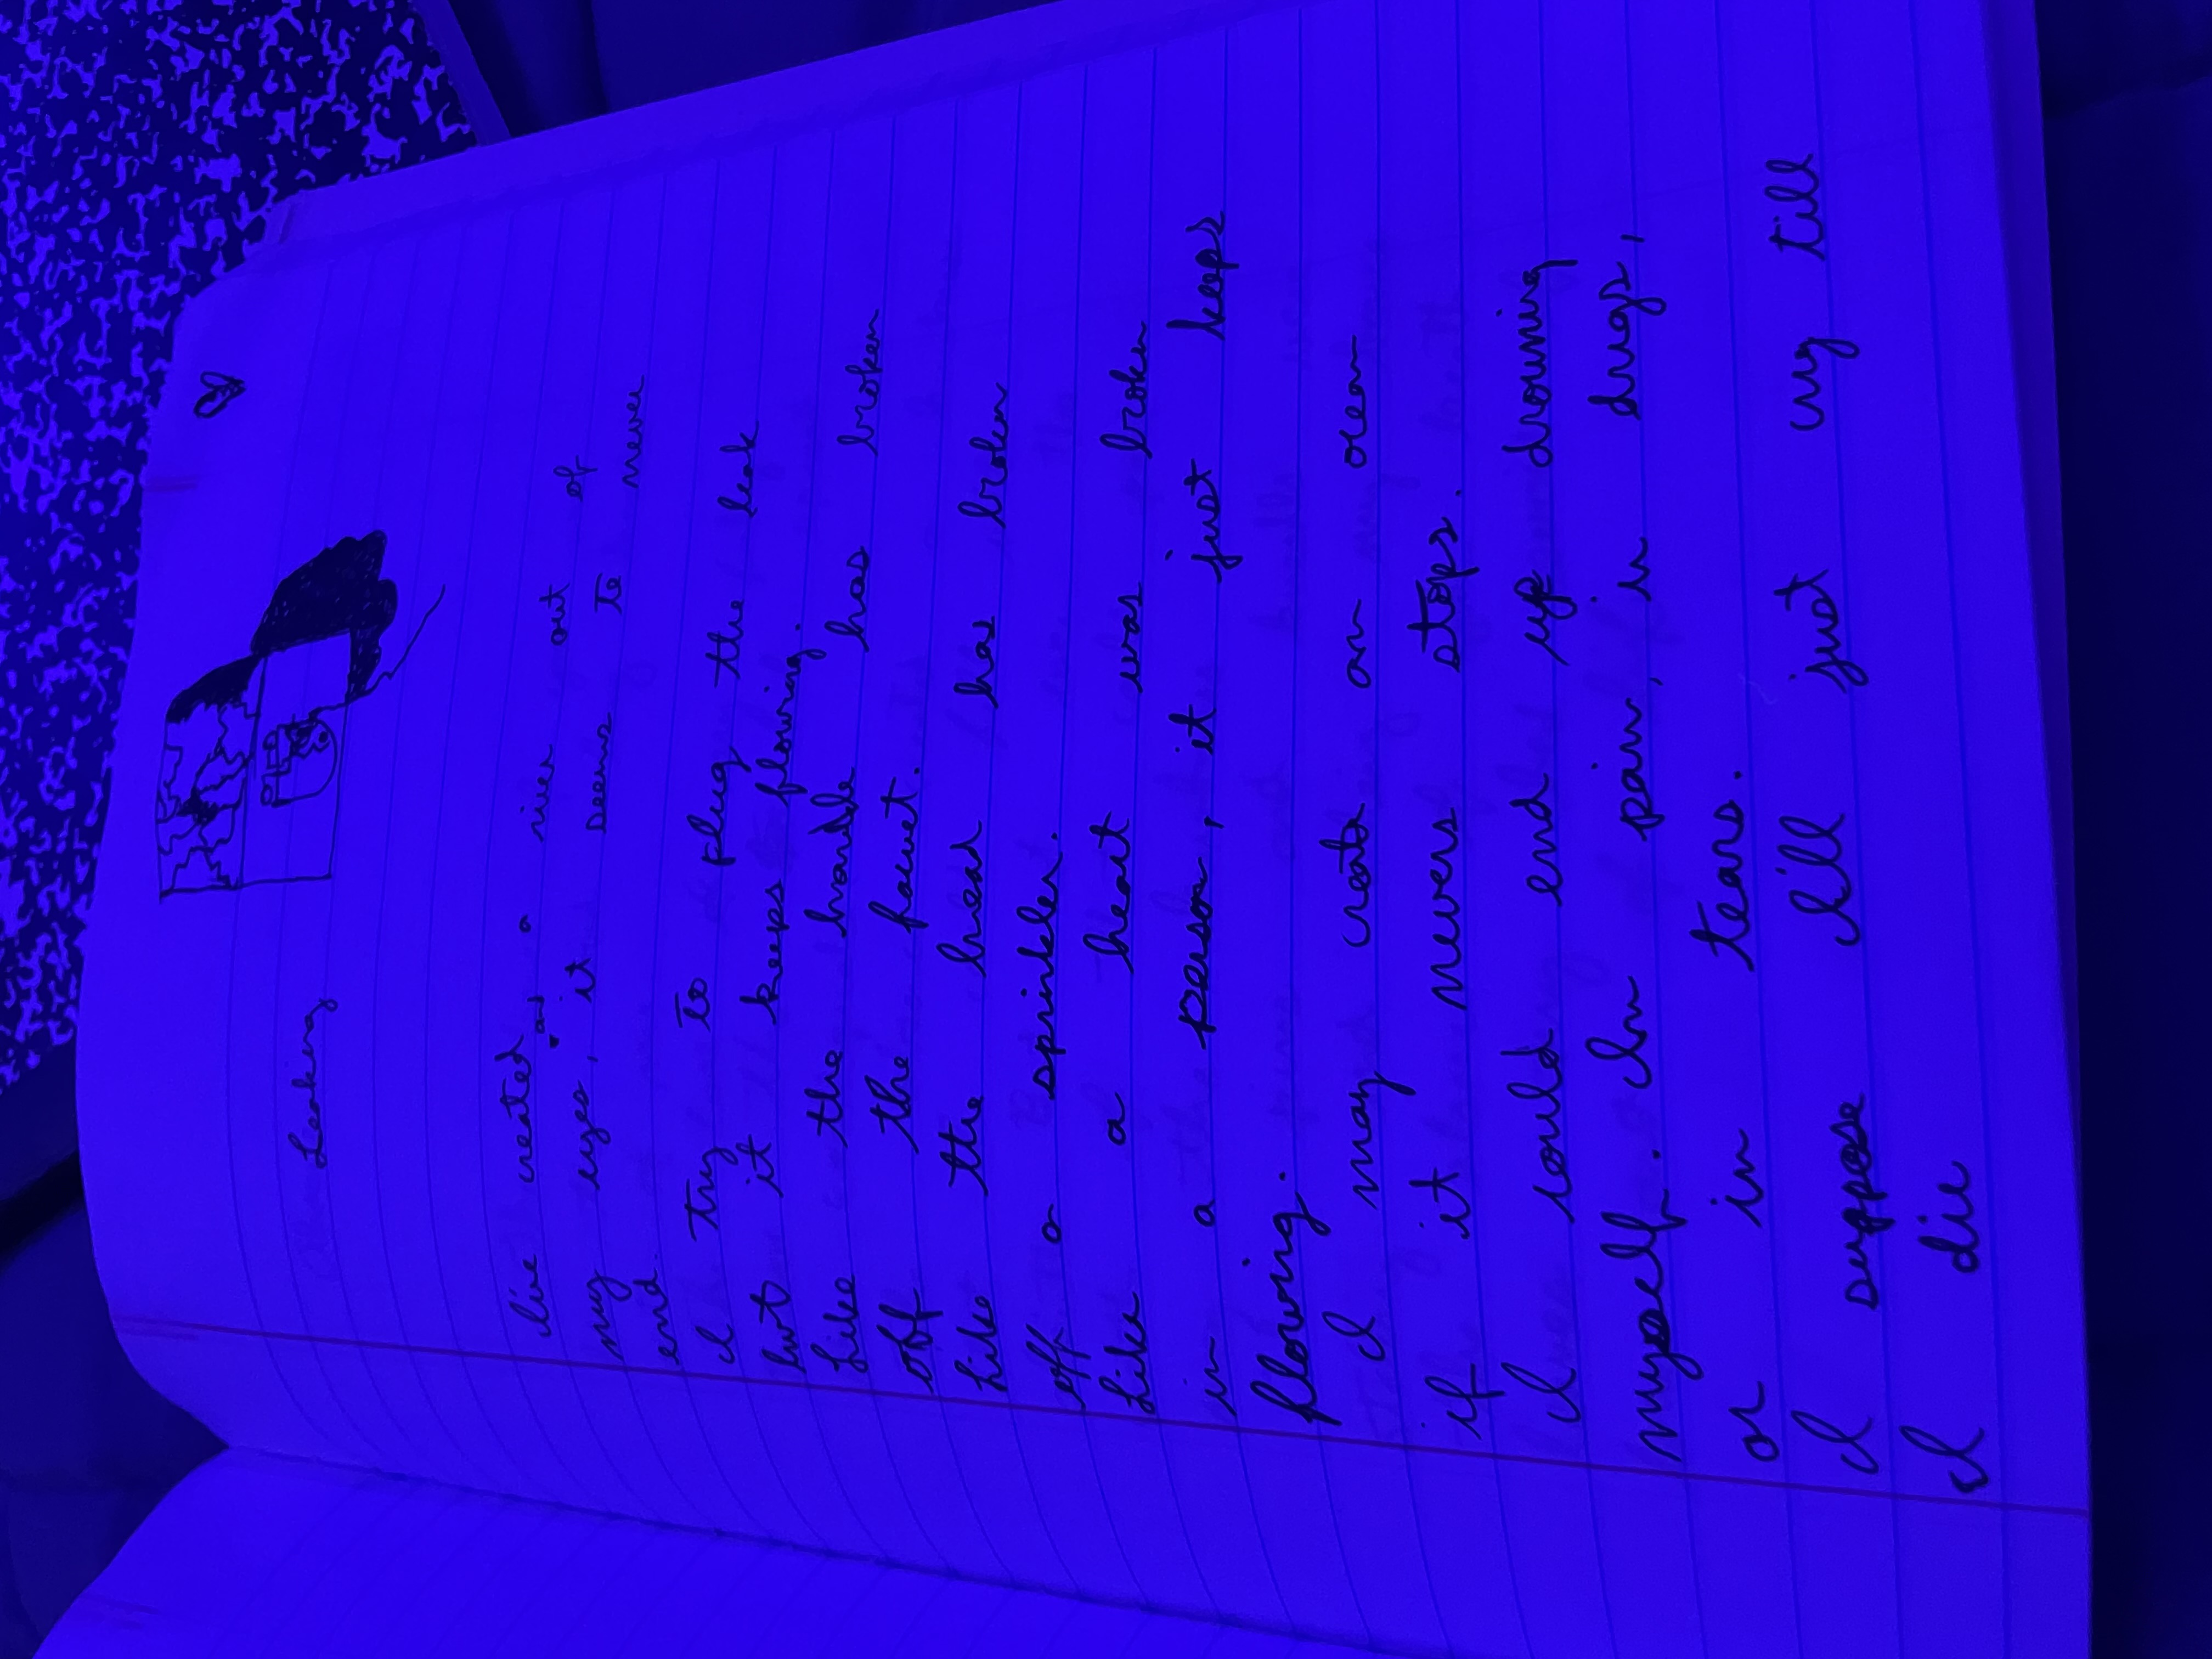 Leaking
I've created a river out of
my eyes, and it seems to never
end.
I try to plug the leak
but it keeps flowing.
Like the handle has broken
off the faucet.
Like the head has broken
off a sprinkler.
Like a heart was broken
in a person, it just keeps
flowing.
I may create an ocean
if it nevers stops.
I could end up drowning
myself. In pain, in drugs,
or in tears.
I suppose I'll just cry till
I die